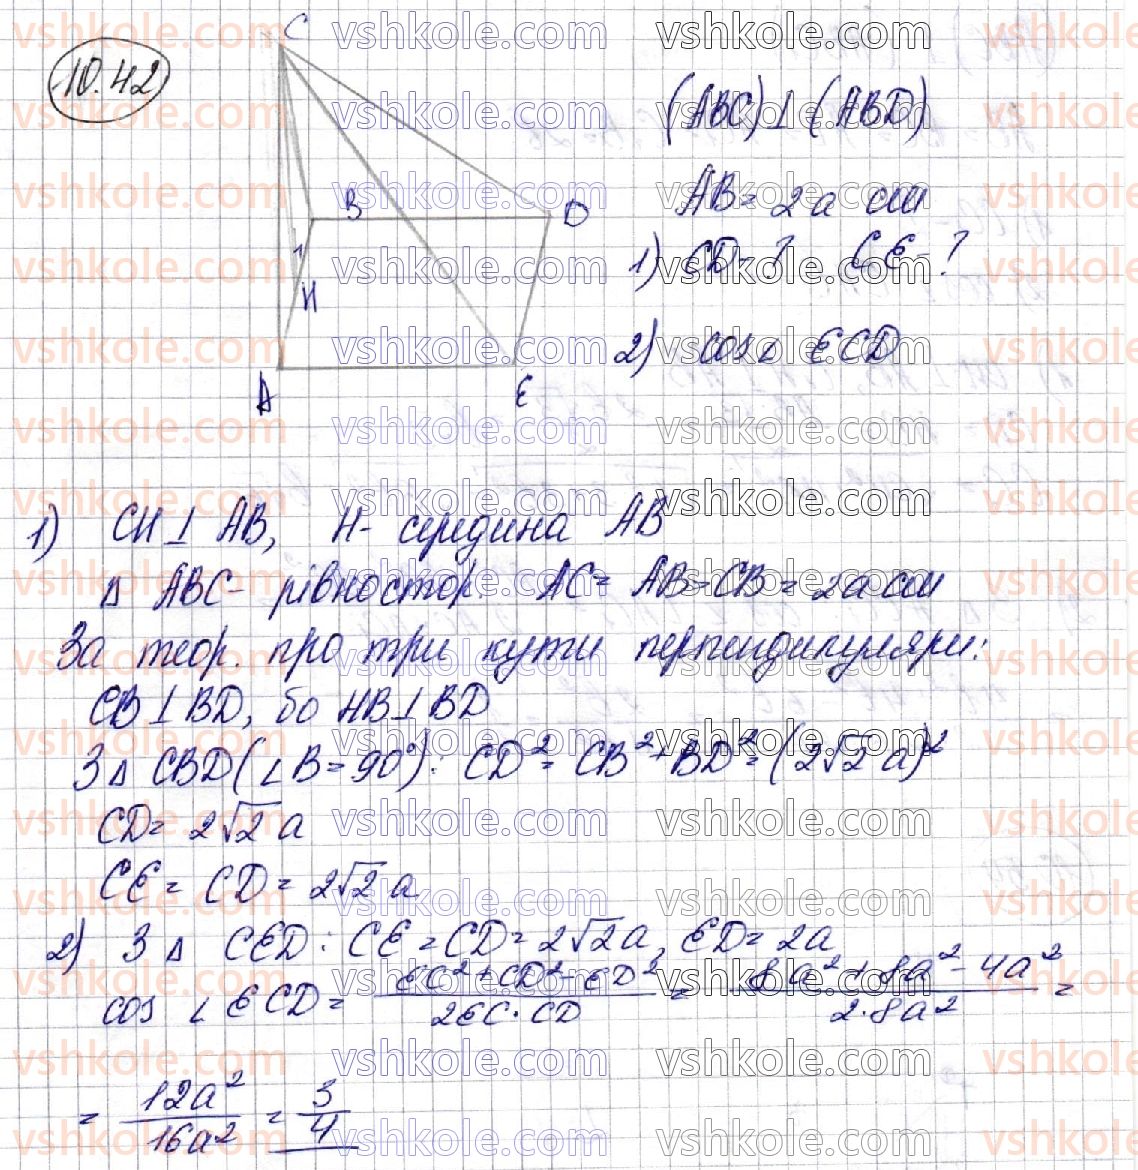 10.42
C
B
D
H
A
E
(ABC)⊥(ABD)
AB = 2a см
1) CD - ? CE - ?
2) cos∠ECD
1) CH⊥AB, H - середина AB
Δ ABC - рівностор. AC = AB = CB = 2a см
За теор. про три кути перпендикуляри:
CB⊥BD, бо HB⊥BD
З Δ CBD (∠B = 90°): CD² = CB² + BD² = (2√2 a)²
CD = 2√2 a
CE = CD = 2√2 a
2) З Δ CED: CE = CD = 2√2 a, ED = 2a
cos ∠ECD = (EC² + CD² - ED²)/(2EC·CD) = (8a² + 8a² - 4a²)/(2·8a²) =
= 12a²/16a² = 3/4
vshkole.com